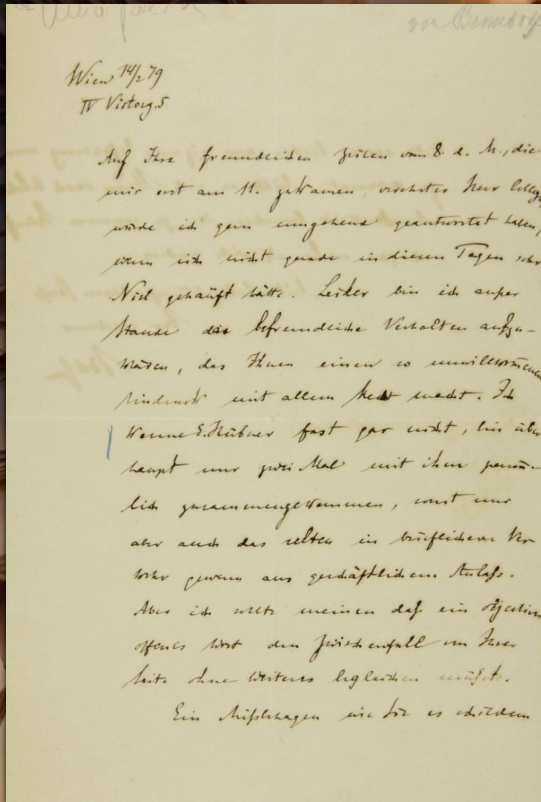 Wien 14/2 79
IV Victorg. 5
Auf Ihre freundlichen Zeilen vom 8. d. M., die
mir erst am 11. zukamen, verehrter Herr College
würde ich gern umgehend geantwortet haben,
wenn sich nicht gerade in diesen Tagen sehr
Viel gehäuft hätte. Leider bin ich außer
Stande das befremdliche Verhalten aufzu-
klären, das Ihnen einen so unwillkommenen
Eindruck mit allem Recht macht. Ich
kenne E. Hübner fast gar nicht, bin über
haupt nur zwei Mal mit ihm persön-
lich zusammengekommen, sonst nur
aber auch das selten in brieflichem Ver
kehr gewesen aus geschäftlichem Anlaß.
Aber ich sollte meinen daß ein objectives
offenes Wort den Zwischenfall von Ihrer
Seite ohne Weiteres begleichen müßte.
Ein Mißbehagen wie Sie es schildern